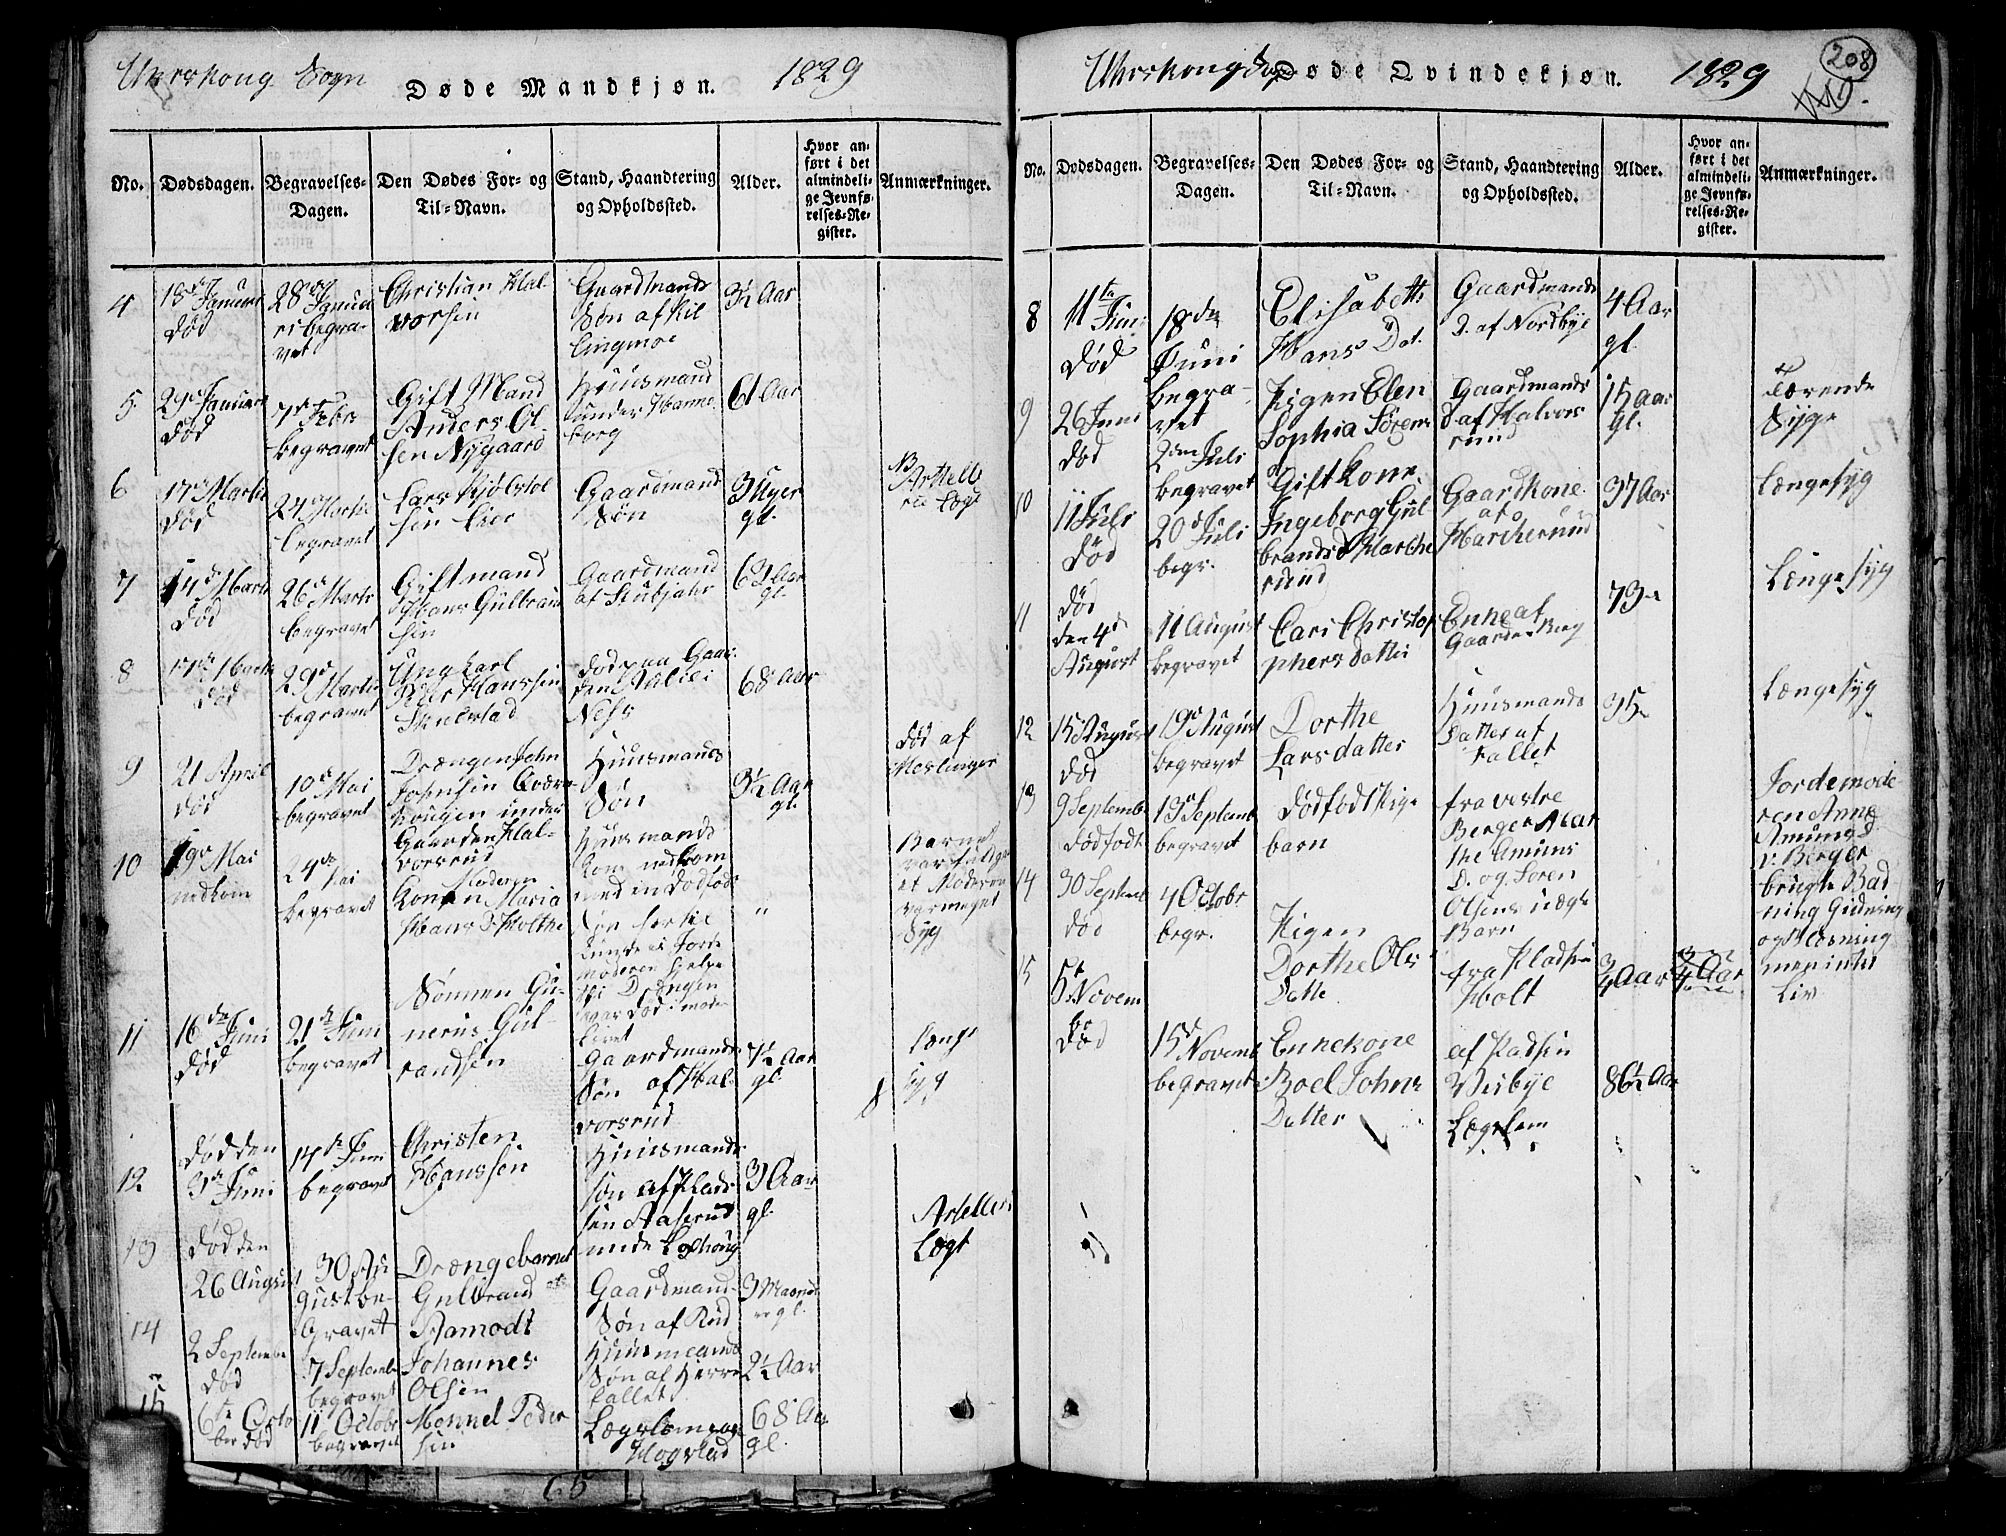 Uhrskoug Sogn
Døde Mandkjøn.
1829
No.
Dødsdagen.
Begravelses-
Dagen.
Den Dødes For- og
Til-Navn.
Stand, Haandtering
og Opholdssted.
Alder.
Hvor an-
ført i det
almindeli-
ge Jevnfø-
relses-Re-
gister.
Anmærkninger.
4
Januari
død
28
Janua
ri begra-
vet
Christian Hal-
vorsen
Gaardmands
Søn af Kil
lingmoe
3½ Aar
5
29 Januari
død
7 Febr
begravet
Gift Mand
Anders Ol
sen Nygaard
Huusmand
under Hanne
borg
61 Aar
6
17 Martii
død
24 Martii
begravet
Lars Kjølstol
sen Lier
Gaardmand
Søn
3 Uger
gl.
7
14 Martii
død
26 Martii
begravet
Gift mand
Hans Gulbran
sen
Gaardmand
af Stubjahr
63 Aar
gl.
8
død
29 Martii
begravet
Ungkarl
Hanssen
død paa Gaar
den
Ness
68 Aar
9
21 April
død
10 Mai
begravet
Drængen John
Johnsen
hougen under
Gaarden Hal-
vorsrud
Huusmands
Søn
3½ Aar
gl.
død af
Meslinger
10
19 Mai
nedkom
24
Mai
begravet
Moderen
Konen Maria
Hans D. Holthe
Huusmands
Kone nedkom
med en dødfød
Søn
Jorde
moderen hjelpe
Drengen
var død i moders
livet
"
Barnet
var fuldgaa
et Moderen
var meget
Syg
11
16 Juni
død
21 Juni
begravet
Sønnen Gu-
nerius Gul-
randsen
Gaardmands
Søn af Hal-
vorsrud
7½ Aar
gl.
8
længe
syg
12
død den
3 Juni
14 Juni
begravet
Christen
Hanssen
Huusmands
søn af Plads
sen Aaserud
unde
3 Aar
gl.
13
død den
26 August
30 Au
gust be-
gravet
Drængebarnet
Gulbrand
Aamodt
Gaardmand
Søn af Rud
3 Maane
der gl.
14
2 September
død
7 Septembr
begravet
Johannes
Olsen
Huusmands
Søn af Herre
fallet
2½ Aar
15
6te Octo
ber død
11 Octobr
begravet
Monnel Peder
sen
Lægslem paa
Hogstad
68 Aar
gl.
Uhrskoug Sogn
Døde Qvindekjøn.
1829
208
No.
Dødsdagen.
Begravelses-
Dagen.
Den Dødes For- og
Til-Navn.
Stand, Haandtering
og Opholdssted.
Alder.
Hvor an-
ført i det
almindeli-
ge Jevnfø-
relses-Re-
gister.
Anmærkninger.
8
11te
Juni
død
18de
Juni
begra-
vet
Elisabeth
Hans Dat.
Gaardmands
D. af Nordbye
4 Aar
gl.
9
26 Juni
død
2den Juli
begravet
Pigen Elen
Sophia Sörens
D
Gaardmands
D af Halvors
rud
15 Aar
gl.
Tærende
Syge
10
11 Juli
død
20 Juli
begr.
Gift Kone
Ingeborg Gul
brandsd Harche
rud
Gaardkone
af
Harcherud
37 Aar
Længesyg
11
død
den 4d
August
11 August
begravet
Cari Christop
phers datter
Enke af
Gaarden Berg
73
Længe syg
12
15 August
død
19 August
begravet
Dorthe
Lars datter
Huusmands
Datter af
Fallet
35
Længesyg
13
9 Septemb
dødfødt
13 Septemb
begravet
dødfødt Pige
barn
fra vestre
Berger Mar
the Amuns
D. og Søren
Olsens uægte
Barn
Jordemode
ren Anne
Amunds d
v. Berger
brugte Bad
ning Gnidning
og Blæsning
men intet
Liv
14
30 Septemb
død
4 Octobr
begr.
Pigen
Dorthe Ols
Datte
fra Pladsen
Holt
¾ Aar
¾ Aar
15
5te
Novem
ber
død
15 Novemb
begravet
Enkekone
Boel Johns
Datter
af Pladsen
Wisbye
Lægslem
86½ Aar